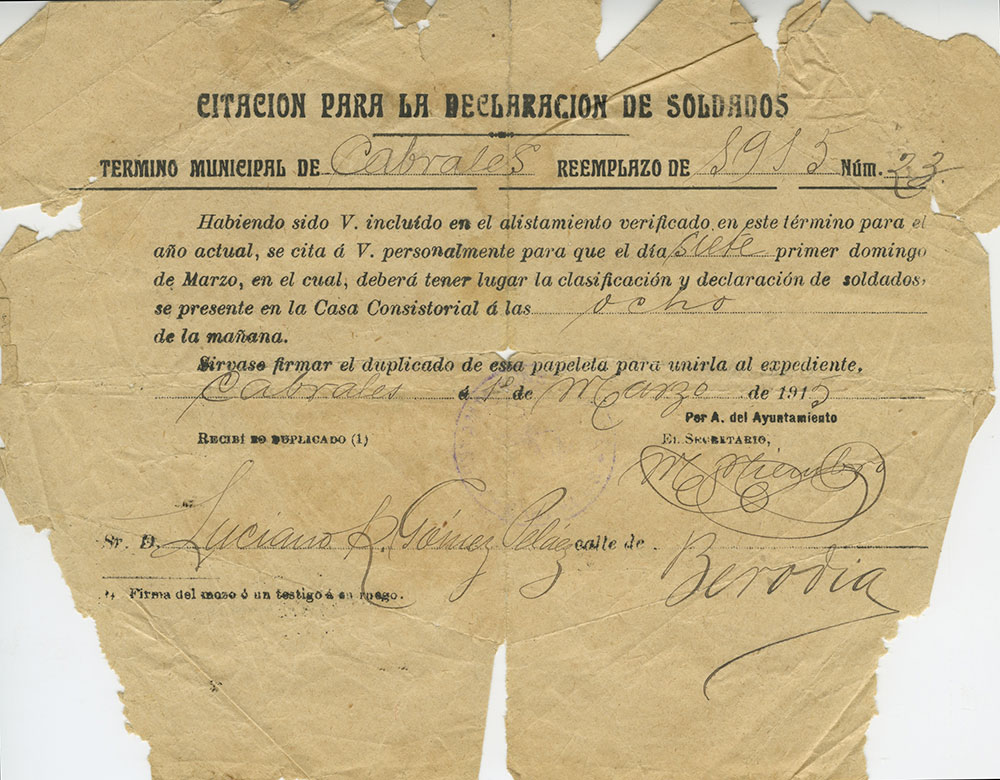 CITACION PARA LA DECLARACION DE SOLDADOS
TERMINO MUNICIPAL DE Cabrales REEMPLAZO DE 1915 Núm. 23.
Habiendo sido V. incluído en el alistamiento verificado en este término para el
año actual, se cita á V. personalmente para que el día siete primer domingo
de Marzo, en el cual, deberá tener lugar la clasificación y declaración de soldados,
se presente en la Casa Consistorial á las ocho
de la mañana.
Sirvase firmar el duplicado de esta papeleta para unirla al expediente.
Cabrales á 1º de Marzo de 1915
Por A. del Ayuntamiento
RECIBÍ DO DUPLICADO (1) EL SECRETARIO,
M
Sr. D. Luciano R. Gómez Peláez calle de Berodia
Firma del mozo ó un testigo á su ruego.